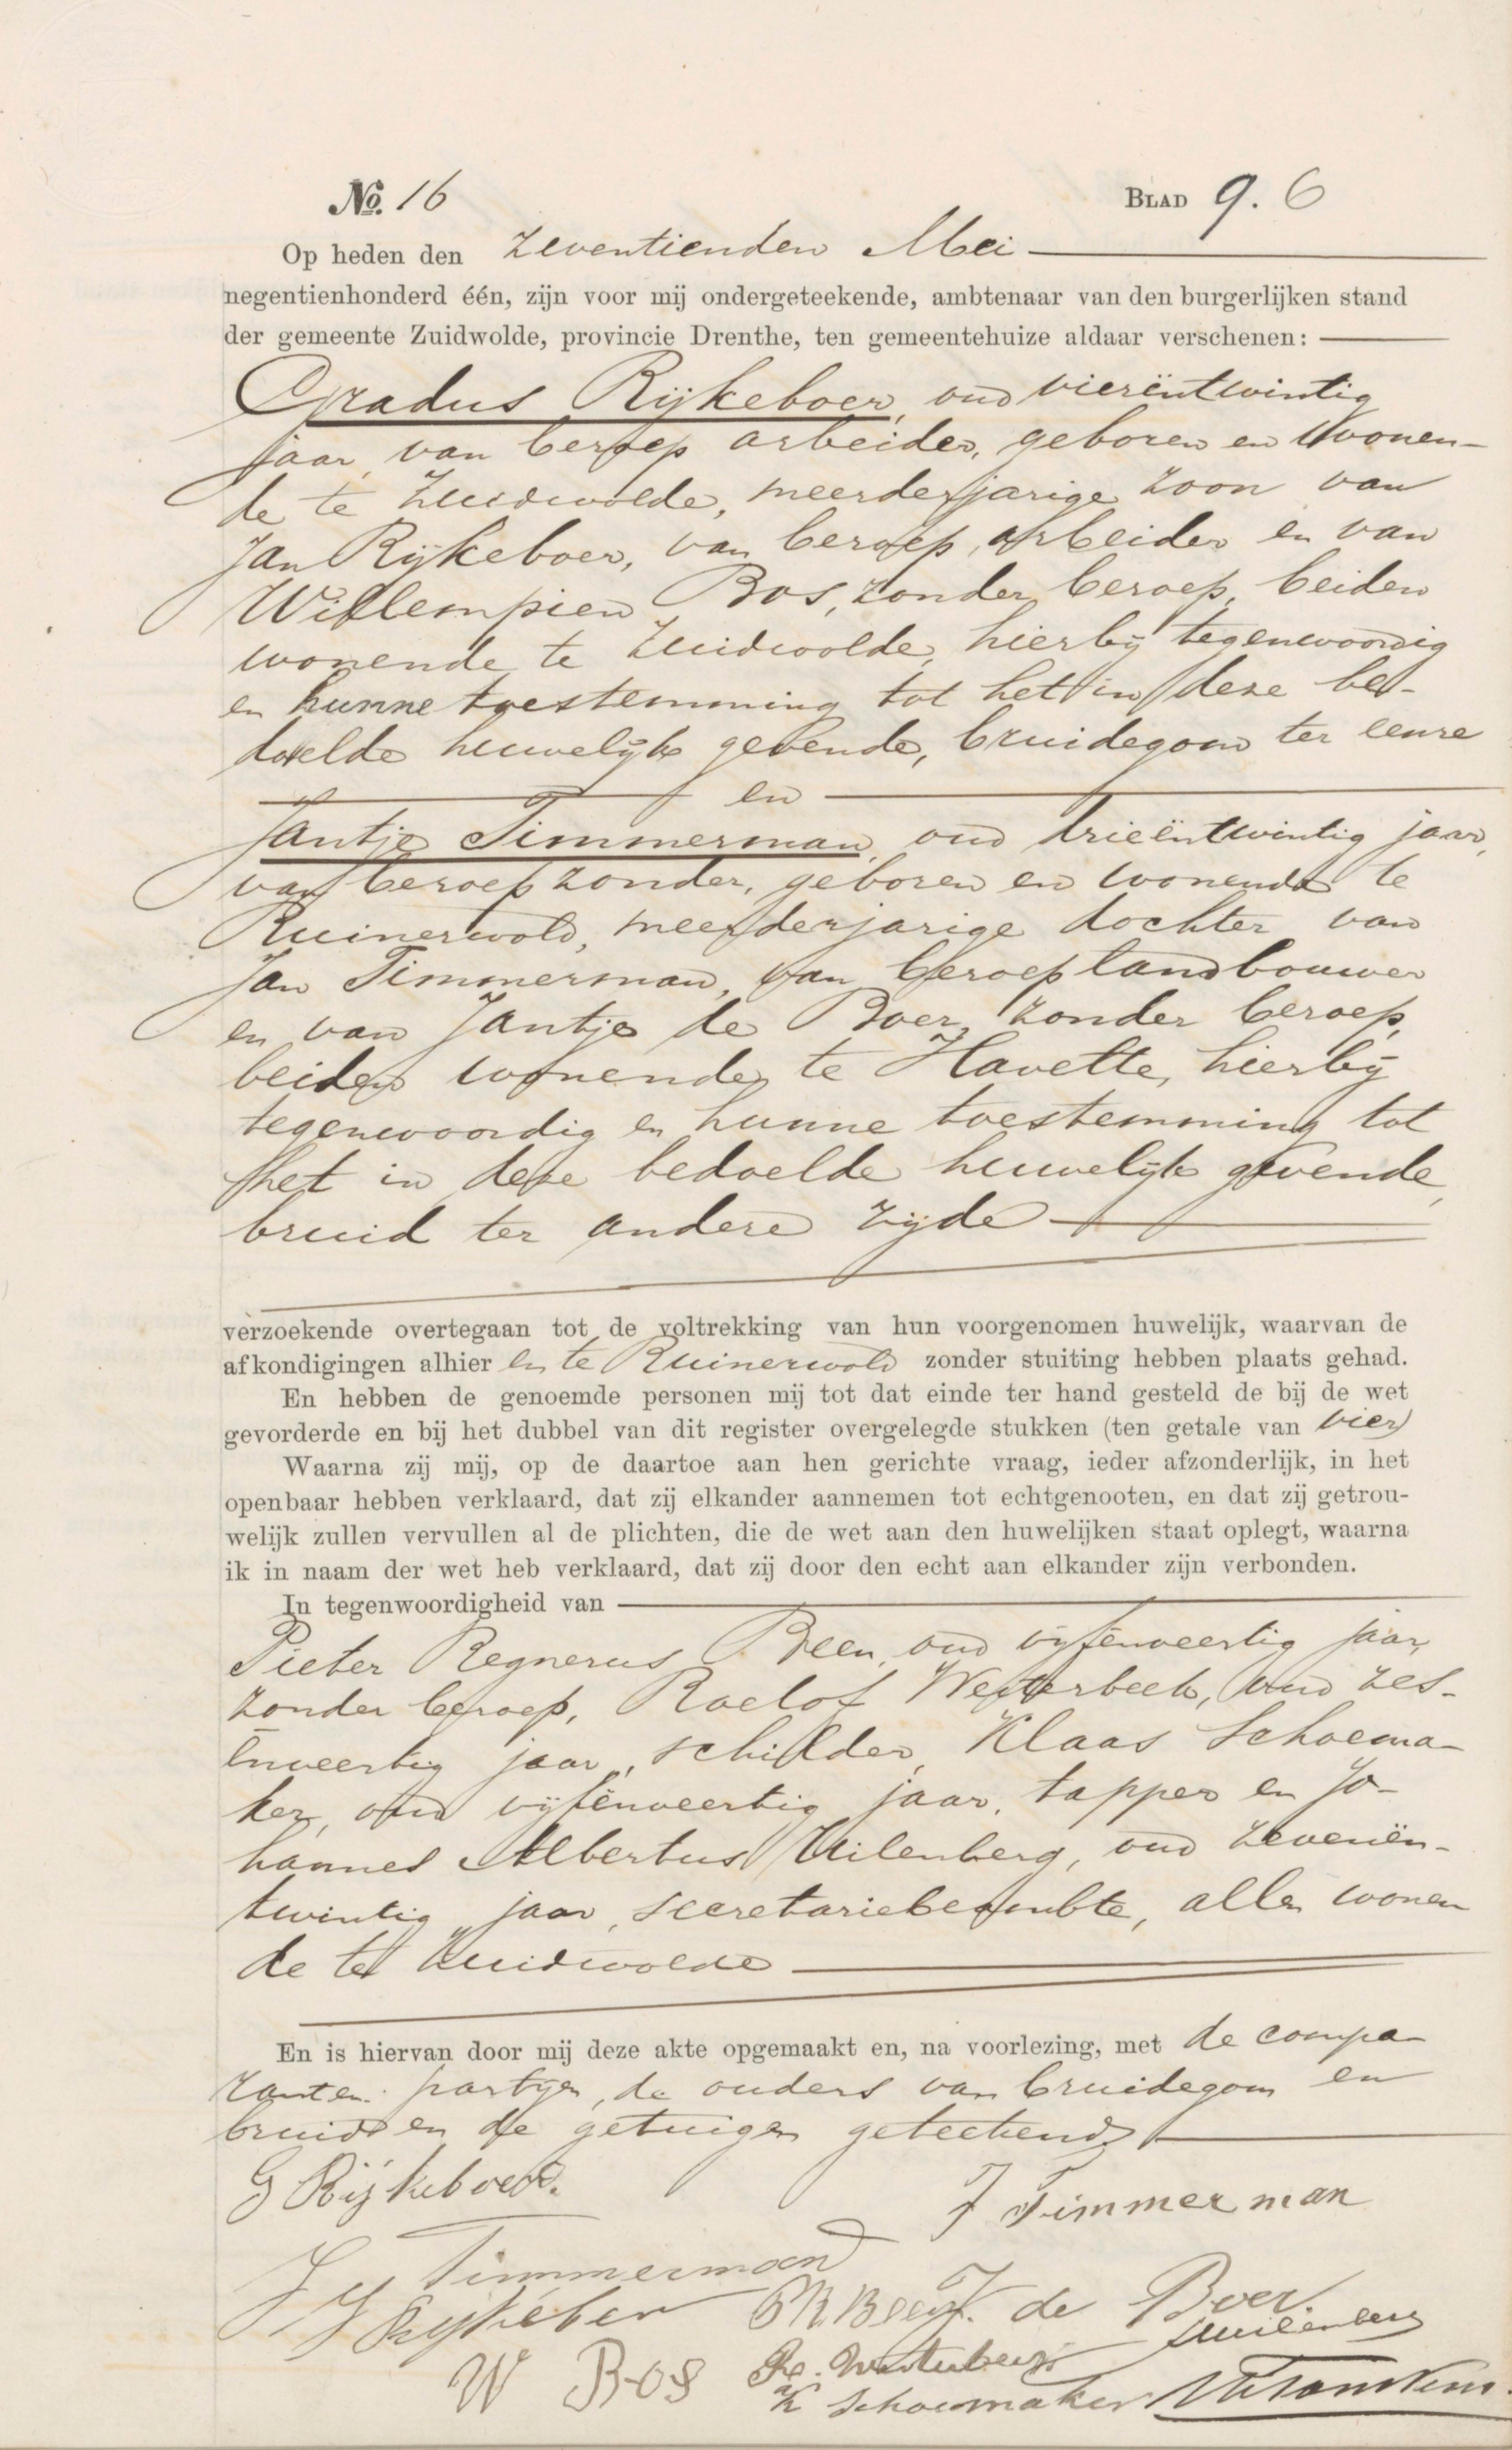 No. 16 BLAD 9. 6
Op heden den zeventienden Mei
negentienhonderd één, zijn voor mij ondergeteekende, ambtenaar van den burgerlijken stand
der gemeente Zuidwolde, provincie Drenthe, ten gemeentehuize aldaar verschenen:
Gradus Rijkeboer, oud vierëntwintig
jaar, van beroep arbeider, geboren en wonen-
de te Zuidwolde, meerderjarige zoon van
Jan Rijkeboer, van beroep arbeider en van
Willempien Bos, zonder beroep, beiden
wonende te Zuidwolde, hierbij tegenwoordig
en hunne toestemming tot het in deze be-
doelde huwelijk gevende, bruidegom ter eenre
en
Jantje Timmerman, oud drieëntwintig jaar,
van beroep zonder, geboren en wonende te
Ruinerwold, meerderjarige dochter van
Jan Timmerman, van beroep landbouwer
en van Jantje de Boer, zonder beroep,
beiden wonende te Havelte, hierbij
tegenwoordig en hunne toestemming tot
het in deze bedoelde huwelijk gevende,
bruid ter andere zijde
verzoekende overtegaan tot de voltrekking van hun voorgenomen huwelijk, waarvan de
afkondigingen alhier en te Ruinerwold zonder stuiting hebben plaats gehad.
En hebben de genoemde personen mij tot dat einde ter hand gesteld de bij de wet
gevorderde en bij het dubbel van dit register overgelegde stukken (ten getale van vier)
Waarna zij mij, op de daartoe aan hen gerichte vraag, ieder afzonderlijk, in het
openbaar hebben verklaard, dat zij elkander aannemen tot echtgenooten, en dat zij getrou-
welijk zullen vervullen al de plichten, die de wet aan den huwelijken staat oplegt, waarna
ik in naam der wet heb verklaard, dat zij door den echt aan elkander zijn verbonden.
In tegenwoordigheid van
Pieter Regnerus Been, oud vijfenveertig jaar,
zonder beroep, Roelof Westerbeek, oud zes-
ënveertig jaar, schilder, Klaas Schoema-
ker, oud vijfënveertig jaar, tapper en Jo-
hannes Albertus Uilenberg, oud zevenën-
twintig jaar, secretariebeambte, allen wonen
de te Zuidwolde
En is hiervan door mij deze akte opgemaakt en, na voorlezing, met de compa-
ranten partijen, de ouders van bruidegom en
bruid en de getuigen geteekend
G Rijkeboer.
J Timmerman
J Timmerman
J Rijkeboer P R Been J. de Boer.
JAUilenberg
W Bos R. Westerbeek
K Schoemaker